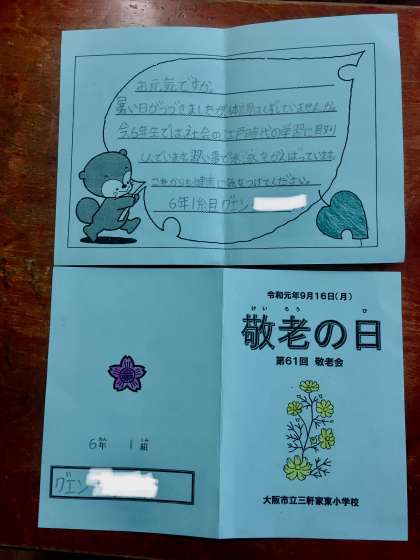 お元気ですか。
暑い日がつづきましたが体調くずしていませんか。
今6年生では社会の江戸時代の学習に取り
くんでいます。
これからも健康に気をつけてください。
6年1組日グエン
令和元年9月16日(月)
けいろう ひ
敬老の日
第61回 敬老会
6年 1組
ねん くみ
グエン
大阪市立三軒家東小学校